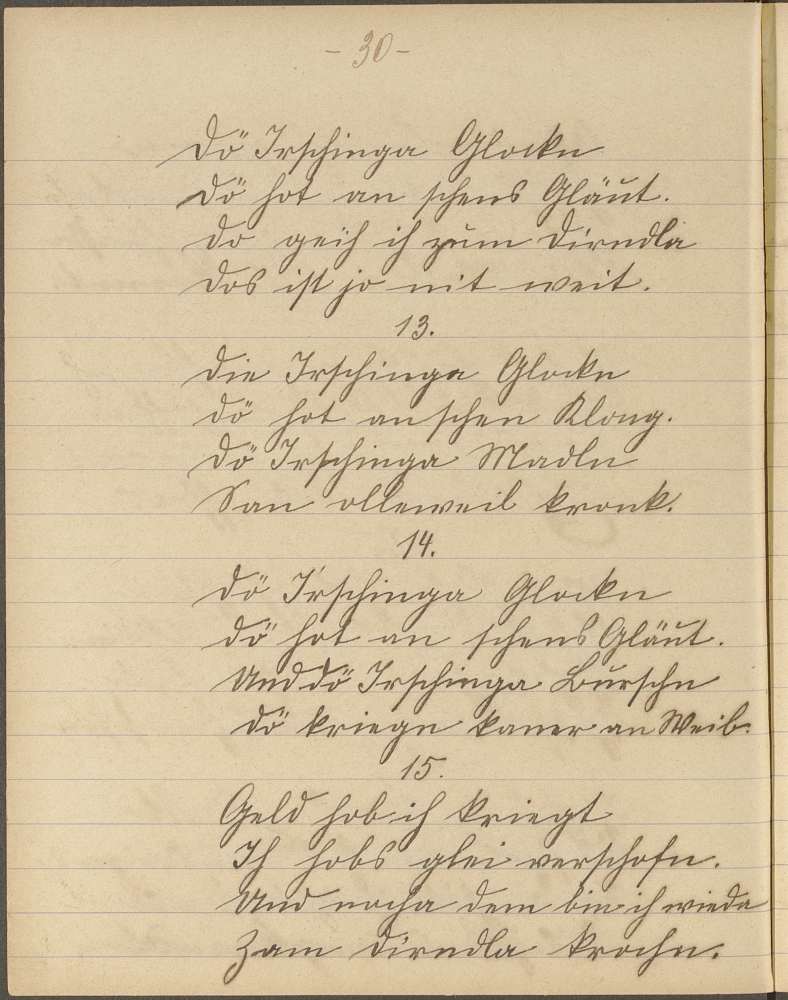 - 30 -
Dö Irschinga Glockn
Dö hot an schens Gläut.
Do geih ich zum Dirndla
Dos ist jo nit weit.
13.
Die Irschinga Glockn
Dö hot an schen Klong.
Dö Irschinga Madln
San olleweil kronk.
14.
Dö Irschinga Glockn
Dö hot an schens Gläut.
Und dö Irschinga Burschn
Dö kriegn kaner an Weib.
15.
Geld hob ich kriegt
Ich hobs glei verschofn.
Und nocha dem bin ich wieda
Zam Dirndla krochn.